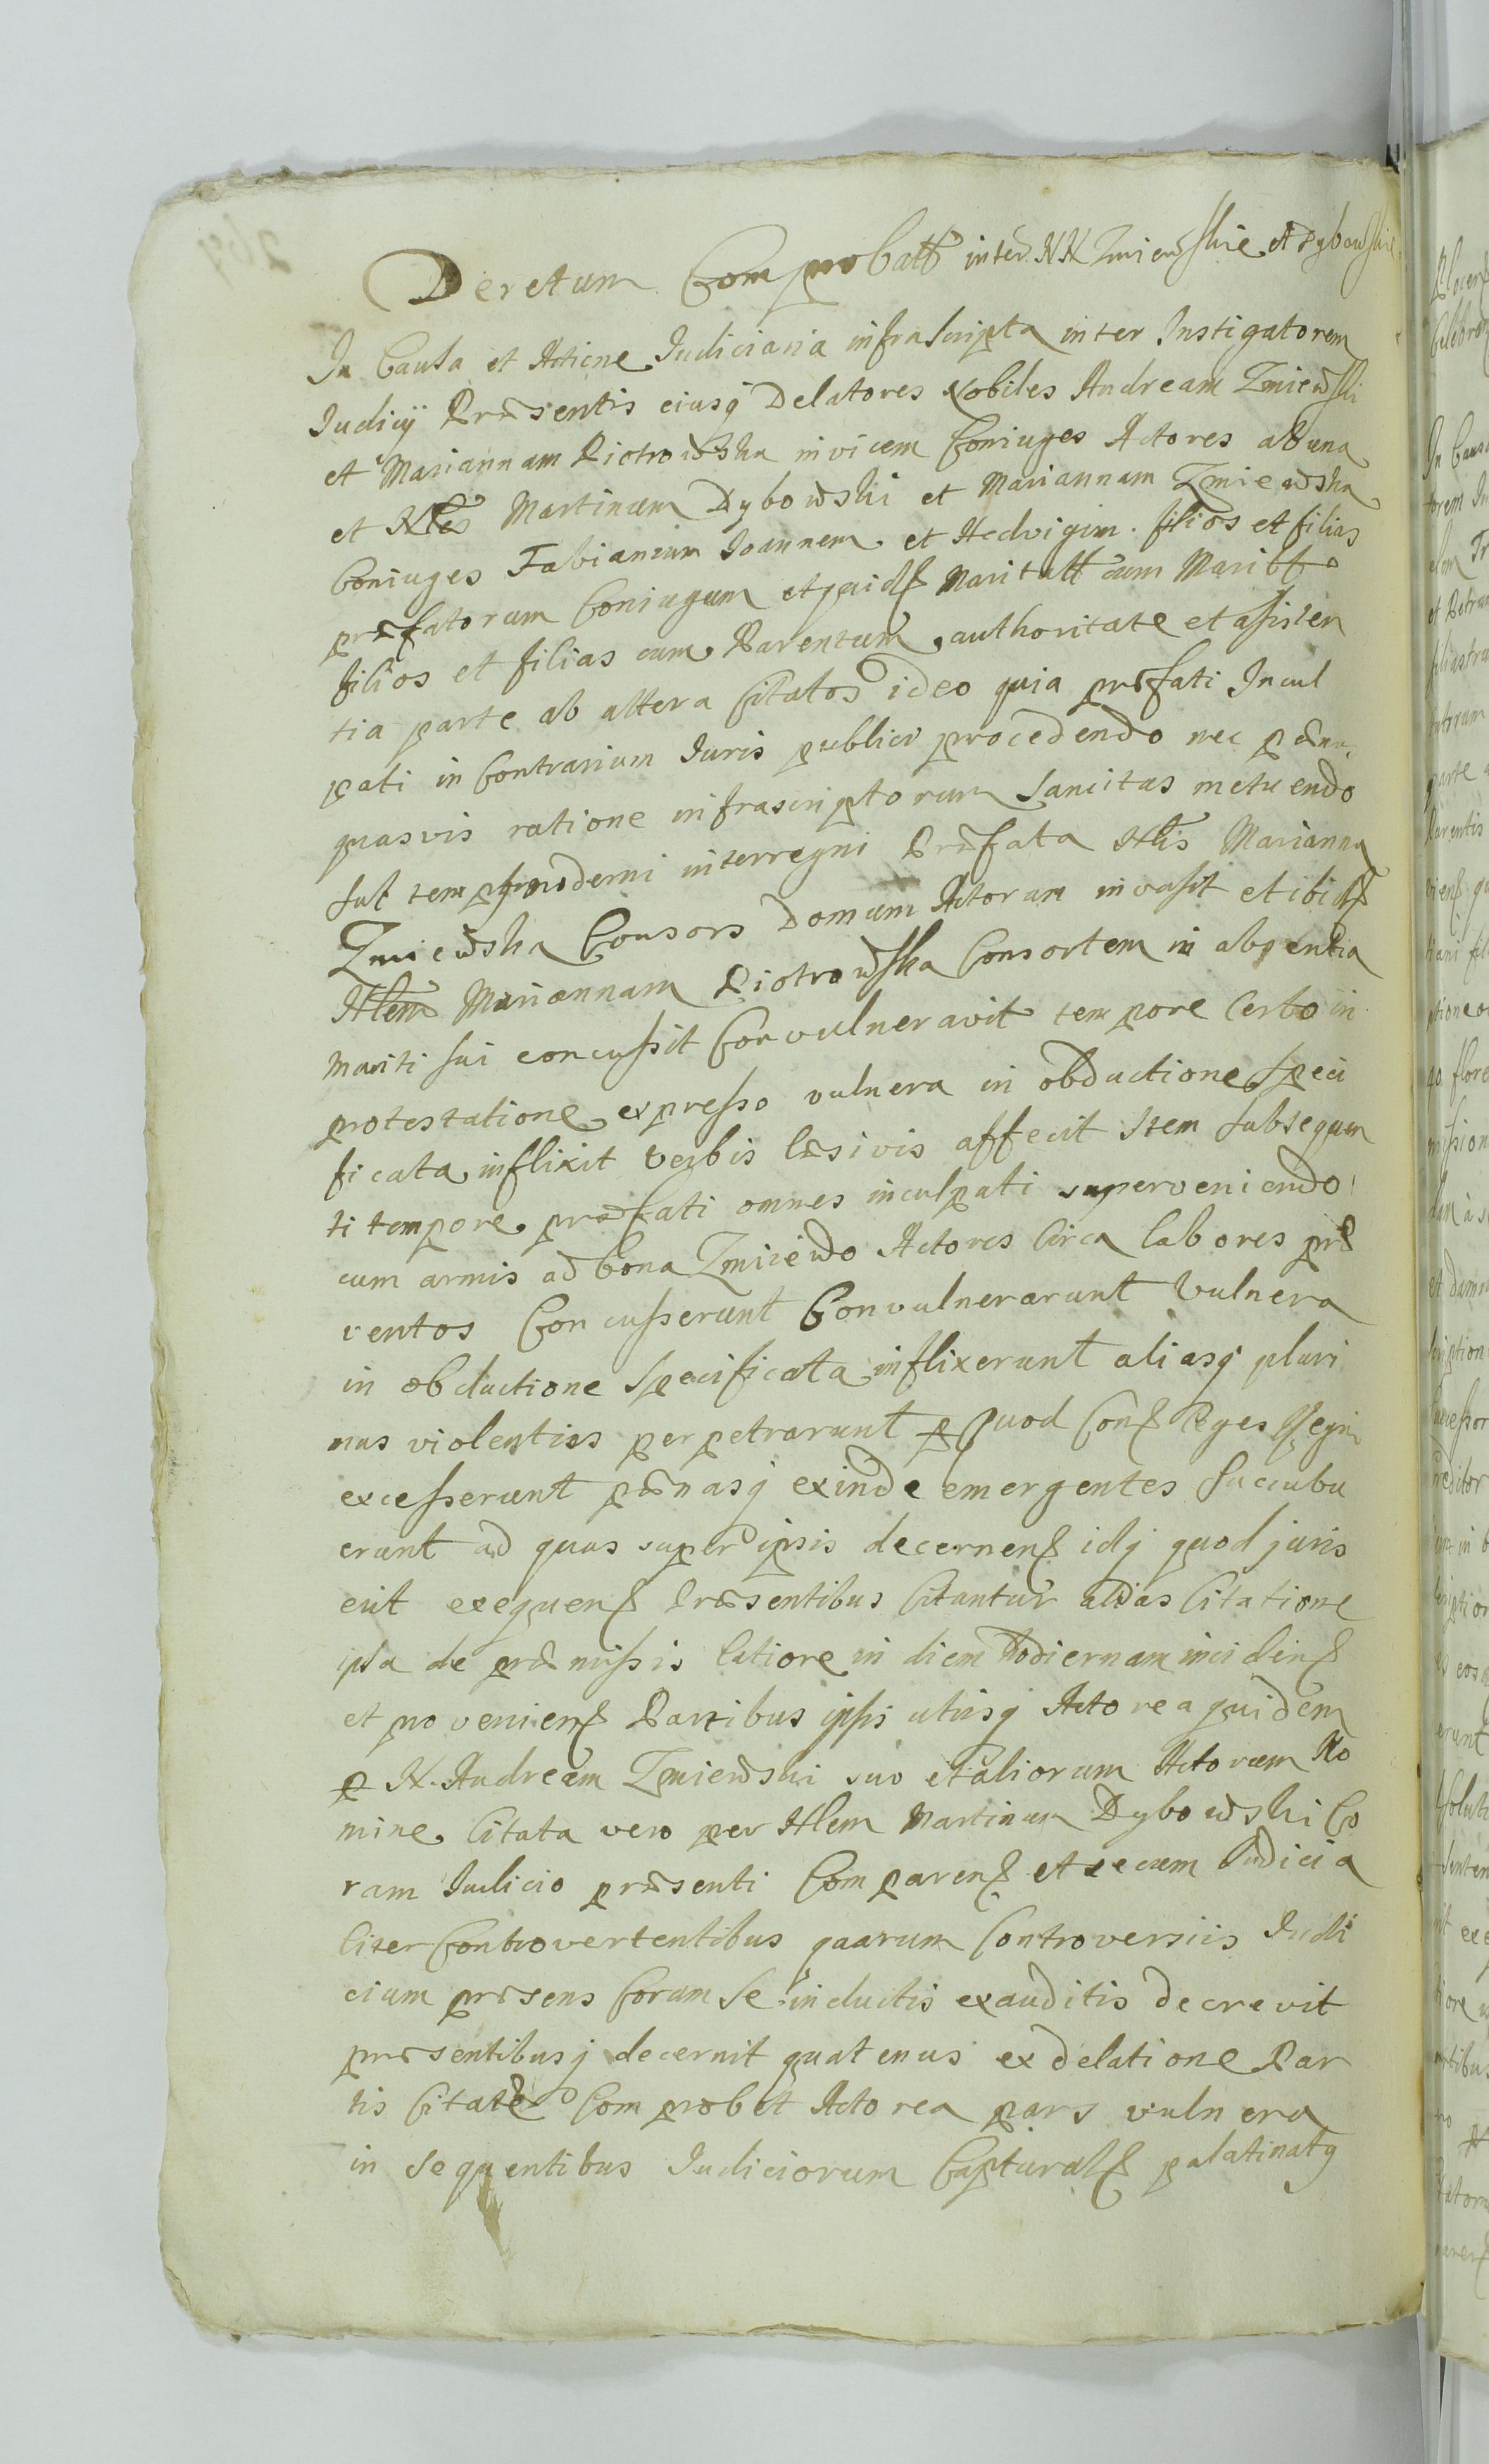 Decretum Comprobatt inter NN Zmiewskie et Dybowskie
In Causa et Actione Judiciaria infrascripta inter Instigatorem
Judicij Præsentis eiusq Delatores Nobiles Andream Zmiewski
et Mariannam Piotrowska invicem Coniuges Actores ab una
et Nles Martinum Dybowski et Mariannam Zmiewska
Coniuges Fabianum Joannem et Hedvigim filios et filias
præfatorum Coniugum et quidē Maritatt cum Maritt
filios et filias cum Parentum authoritate et assisten
tia parte ab altera Citatos ideo quia præfati Incul
pati in Contrarium Juris publici procedendo nec pæna
quasvis ratione infrascriptorum sancitas metuendo
sub temp moderni interregni Præfata Nlis Marianna
Zmiewska Consors Domum Actorum invasit et ibidē
Nlem Mariannam Piotrowska Consortem in absentia
mariti sui concussit Convulneravit tempore Certo in
protestatione expresso vulnera in obductione speci
ficata inflixit verbis læsivis affecit Item subsequen
ti tempore præfati omnes inculpati superveniendo
cum armis ad bona Zmiiewo Actores Circa labores præ
ventos Concusserunt Convulnerarunt Vulnera
in obductione specificata inflixerunt aliasq pluri
mas violentias perpetrarunt p quod Cons leges Regni
excesserunt pænasq exinde emergentes succubu
erunt ad quas super ipsis decernen idq quod juris
erit exequen Præsentibus Citantur alias Citatione
ipsa de præmissis latiore in diem hodiernam inciden
et provenien Partibus ipsis utrisq Actorea quidem
p N. Andream Zmiewski suo et aliorum Actorum No
mine Citata vero per Nlem Martinum Dybowski Co
ram Judicio præsenti Comparen et secum Judicia
liter Controvertentibus quarum Controversiis Judi
cium præsens Coram se inductis exauditis decrevit
præsentibusq decernit quatenus ex delatione Par
tis Citatæ Comprobet Actorea pars vulnera
in sequentibus Judiciorum Capturaln palatinatq